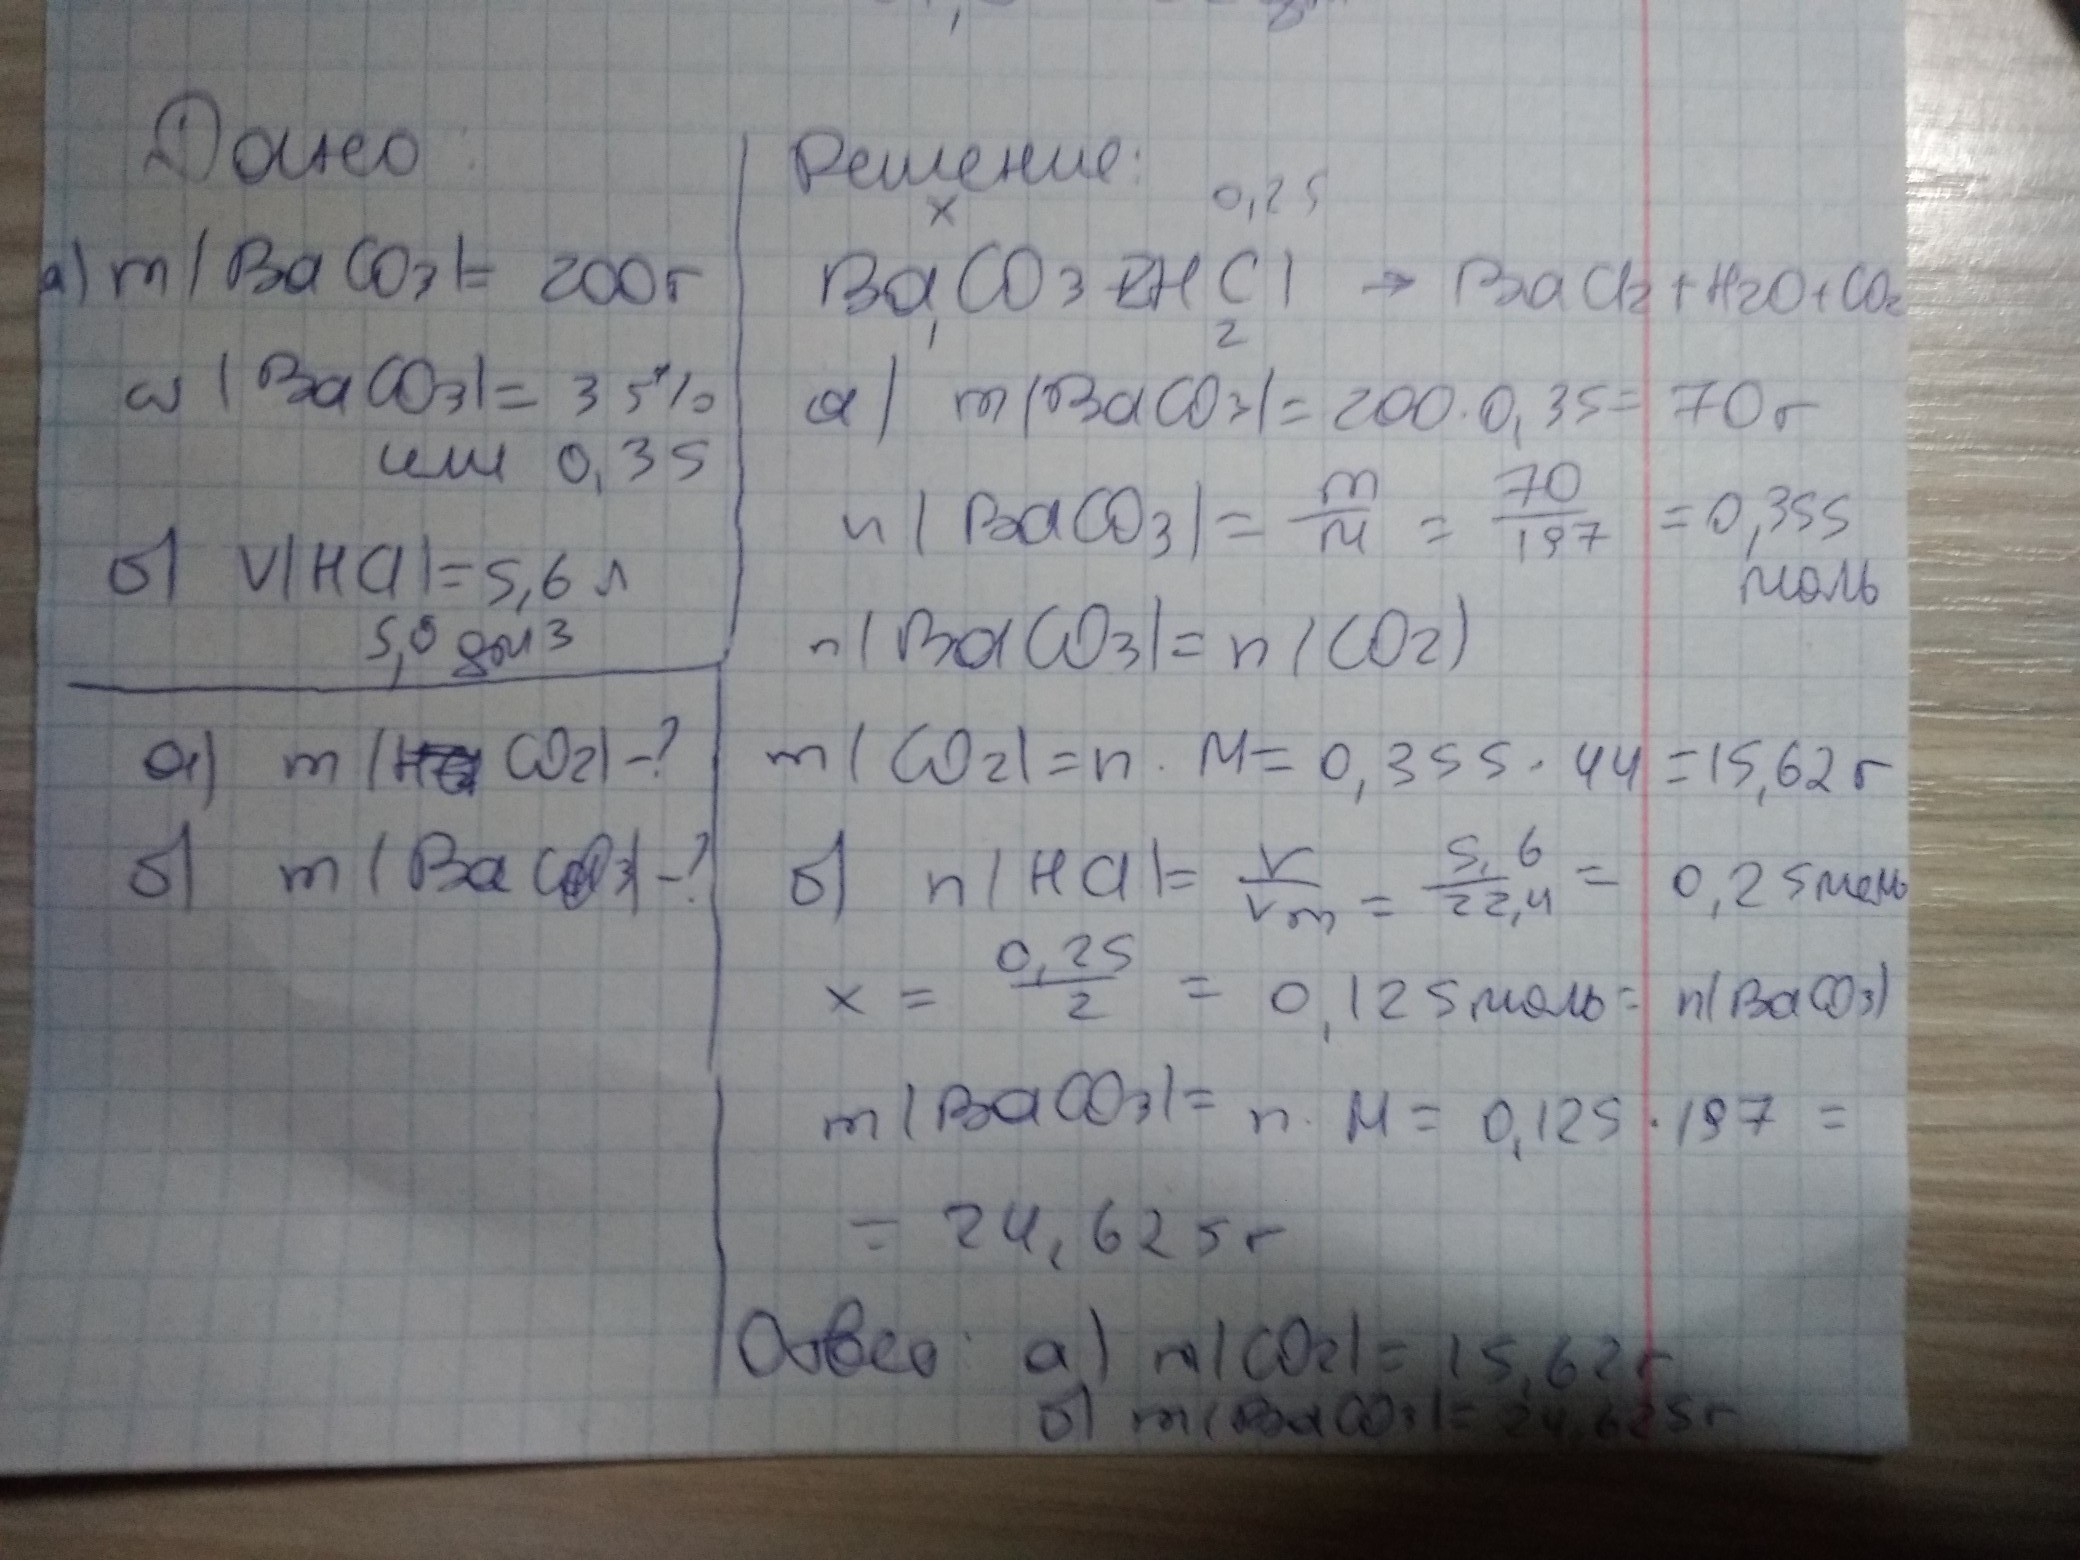 Дано:
а) m(BaCO3)= 200г
ω (BaCO3)= 35%
или 0,35
б) V(HCl)=5,6 л
5,6 дм3
а) m( CO2)-?
б) m(BaCO3)-?
Решение:
x 0,25
BaCO3+2HCl → BaCl2+H2O+CO2
1 2
а) m(BaCO3)= 200·0,35= 70г
n(BaCO3)= m/M = 70/197 =0,355
моль
n(BaCO3)= n(CO2)
m(CO2)=n·M= 0,355·44=15,62г
б) n(HCl)= V/Vm = 5,6/22,4 = 0,25моль
x = 0,25/2 = 0,125моль= n(BaCO3)
m(BaCO3)= n·M= 0,125·197 =
= 24,625г
Ответ: а) m(CO2)= 15,62г
б) m(BaCO3)= 24,625г